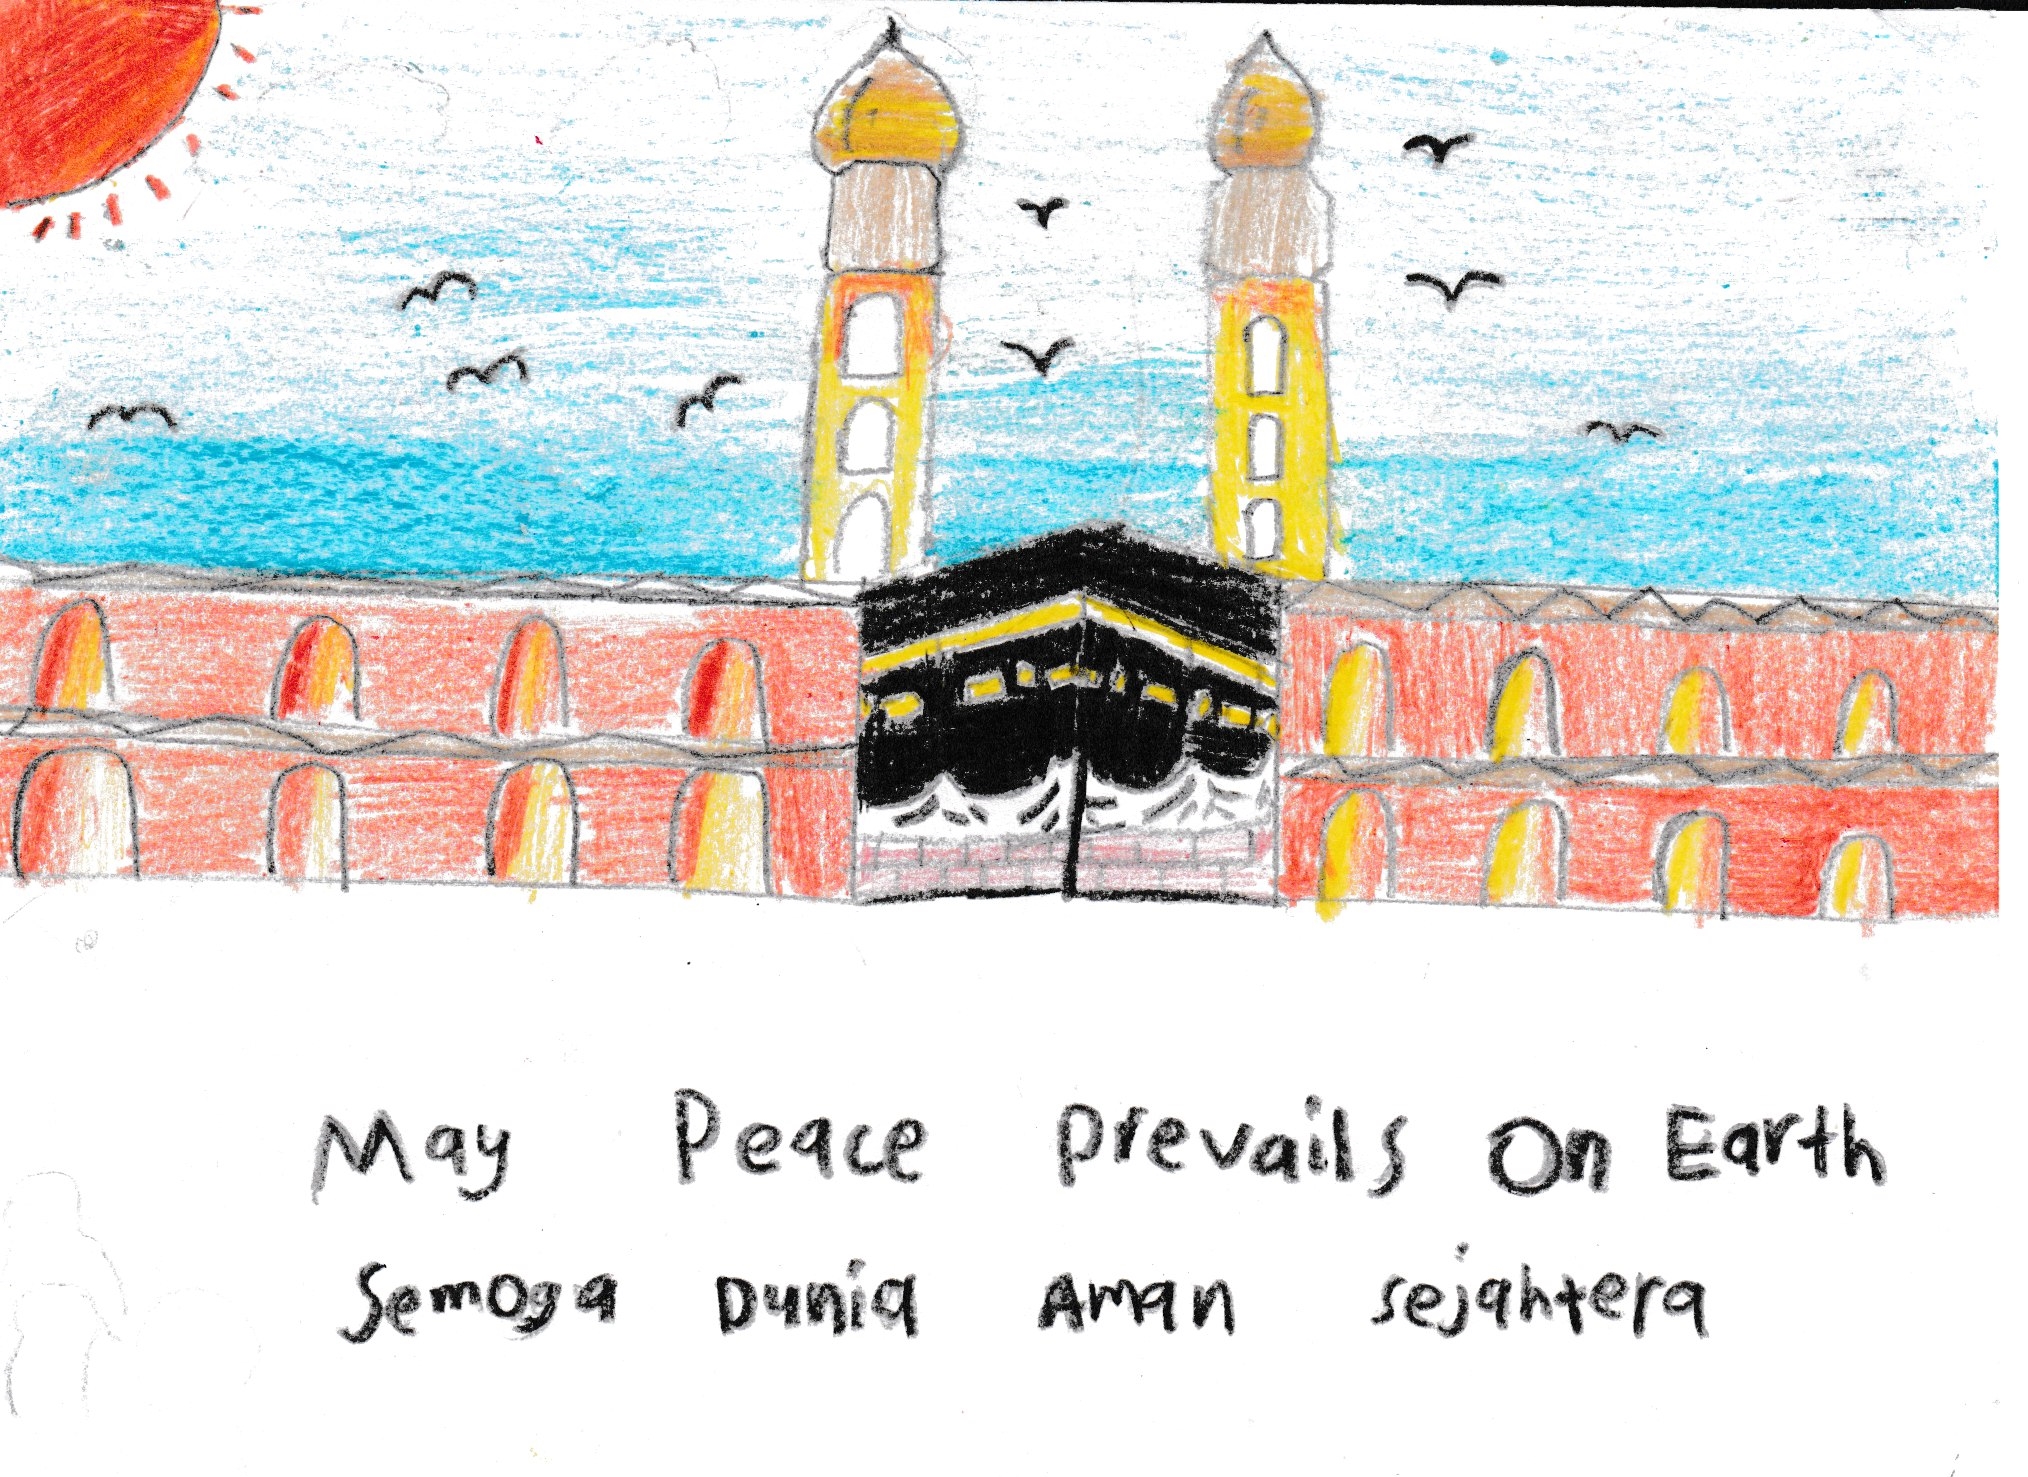 May Peace Prevails On Earth
Semoga Dunia Aman Sejahtera